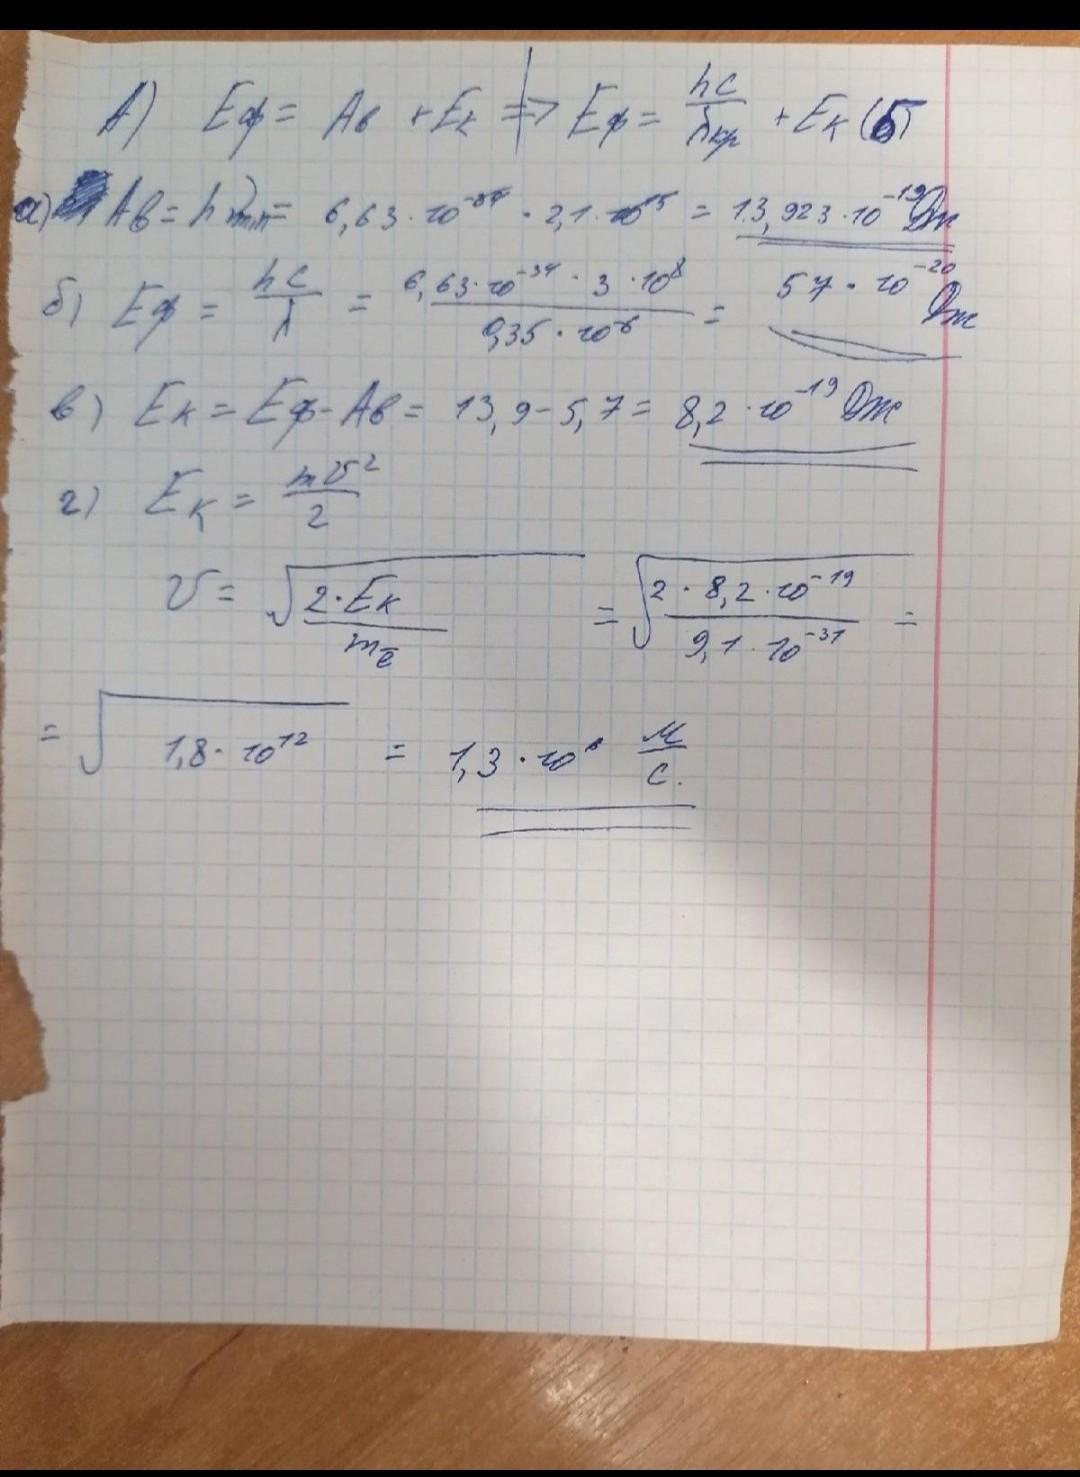 А) Eф = Ав + Eк => Eф = hc/λкр + Eк (б)
а) Ав = hν min = 6,63·10⁻³⁴ · 2,1·10¹⁵ = 13,923·10⁻¹⁹ Дж
б) Eф = hc/λ = 6,63·10⁻³⁴ · 3·10⁸ / 0,35·10⁻⁶ = 57·10⁻²⁰ Дж
в) Eк = Eф - Ав = 13,9 - 5,7 = 8,2·10⁻¹⁹ Дж
г) Eк = mv²/2
v = √(2·Eк/mē) = √(2·8,2·10⁻¹⁹/9,1·10⁻³¹) =
= √(1,8·10¹²) = 1,3·10⁶ м/с.